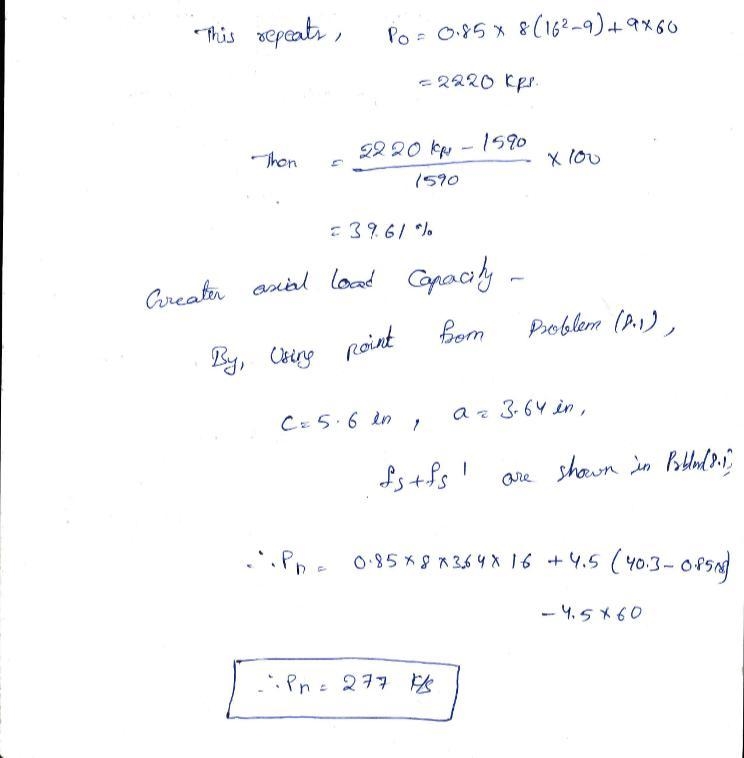 This repeats, Po = 0.85 x 8(16²-9)+9x60
= 2220 kps.
Then = 2220 kps - 1590 / 1590 x 100
= 39.61 %
Greater axial load Capacity -
By, Using point from Problem (8.1),
C = 5.6 in , a = 3.64 in,
fs + fs' are shown in (8.1),
∴ Pn = 0.85 x 8 x 3.64 x 16 + 4.5 (40.3 - 0.85x8)
- 4.5 x 60
∴ Pn = 277 k/s